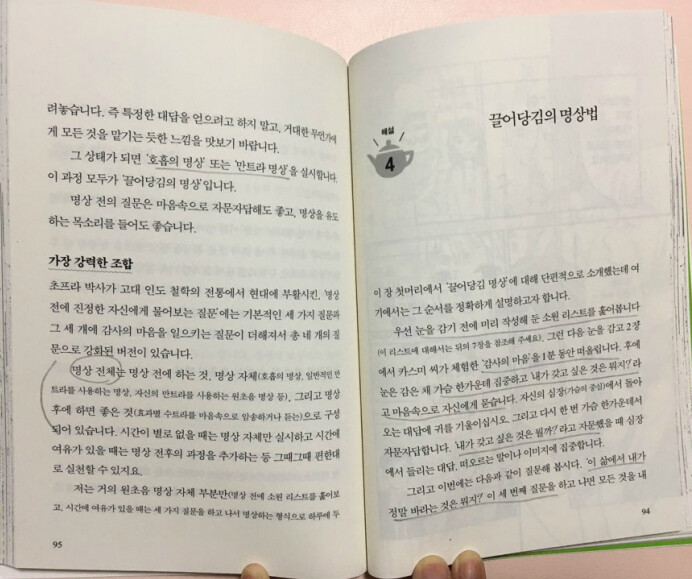 해설
4
끌어당김의 명상법
이 장 첫머리에서 '끌어당김 명상'에 대해 단편적으로 소개했는데 여
기에서는 그 순서를 정확하게 설명하고자 합니다.
우선 눈을 감기 전에 미리 작성해 둔 소원 리스트를 훑어봅니다
(이 리스트에 대해서는 뒤의 7장을 참조해 주세요). 그런 다음 눈을 감고 2장
에서 카스미 씨가 체험한 '감사의 마음'을 1분 동안 떠올립니다. 후에
눈은 감은 채 가슴 한가운데에 집중하고 '내가 갖고 싶은 것은 뭐지?'라
고 마음속으로 자신에게 묻습니다. 자신의 심장(가슴의 중심)에서 돌아
오는 대답에 귀를 기울이십시오. 그리고 다시 한 번 가슴 한가운데서
자문자답합니다. '내가 갖고 싶은 것은 뭘까?'라고 자문했을 때 심장
에서 들리는 대답, 떠오르는 말이나 이미지에 집중합니다.
그리고 이번에는 다음과 같이 질문해 봅시다. '이 삶에서 내가
정말 바라는 것은 뭐지?' 이 세 번째 질문을 하고 나면 모든 것을 내
94
려놓습니다. 즉 특정한 대답을 얻으려고 하지 말고, 거대한 무언가에
게 모든 것을 맡기는 듯한 느낌을 맛보기 바랍니다.
그 상태가 되면 '호흡의 명상' 또는 '만트라 명상'을 실시합니다.
이 과정 모두가 '끌어당김의 명상'입니다.
명상 전의 질문은 마음속으로 자문자답해도 좋고, 명상을 유도
하는 목소리를 들어도 좋습니다.
가장 강력한 조합
초프라 박사가 고대 인도 철학의 전통에서 현대에 부활시킨, '명상
전에 진정한 자신에게 물어보는 질문'에는 기본적인 세 가지 질문과
그 세 개에 감사의 마음을 일으키는 질문이 더해져서 총 네 개의 질
문으로 강화된 버전이 있습니다.
명상 전체는 명상 전에 하는 것, 명상 자체(호흡의 명상, 일반적인 만
트라를 사용하는 명상, 자신의 만트라를 사용하는 원초음 명상 등), 그리고 명상
후에 하면 좋은 것(효과별 수트라를 마음속으로 암송하거나 듣는)으로 구성
되어 있습니다. 시간이 별로 없을 때는 명상 자체만 실시하고 시간에
여유가 있을 때는 명상 전후의 과정을 추가하는 등 그때그때 편한대
로 실천할 수 있지요.
저는 거의 원초음 명상 자체 부분만(명상 전에 소원 리스트를 훑어보
고, 시간에 여유가 있을 때는 세 가지 질문을 하고 나서 명상하는 형식으로 하루에 두
95